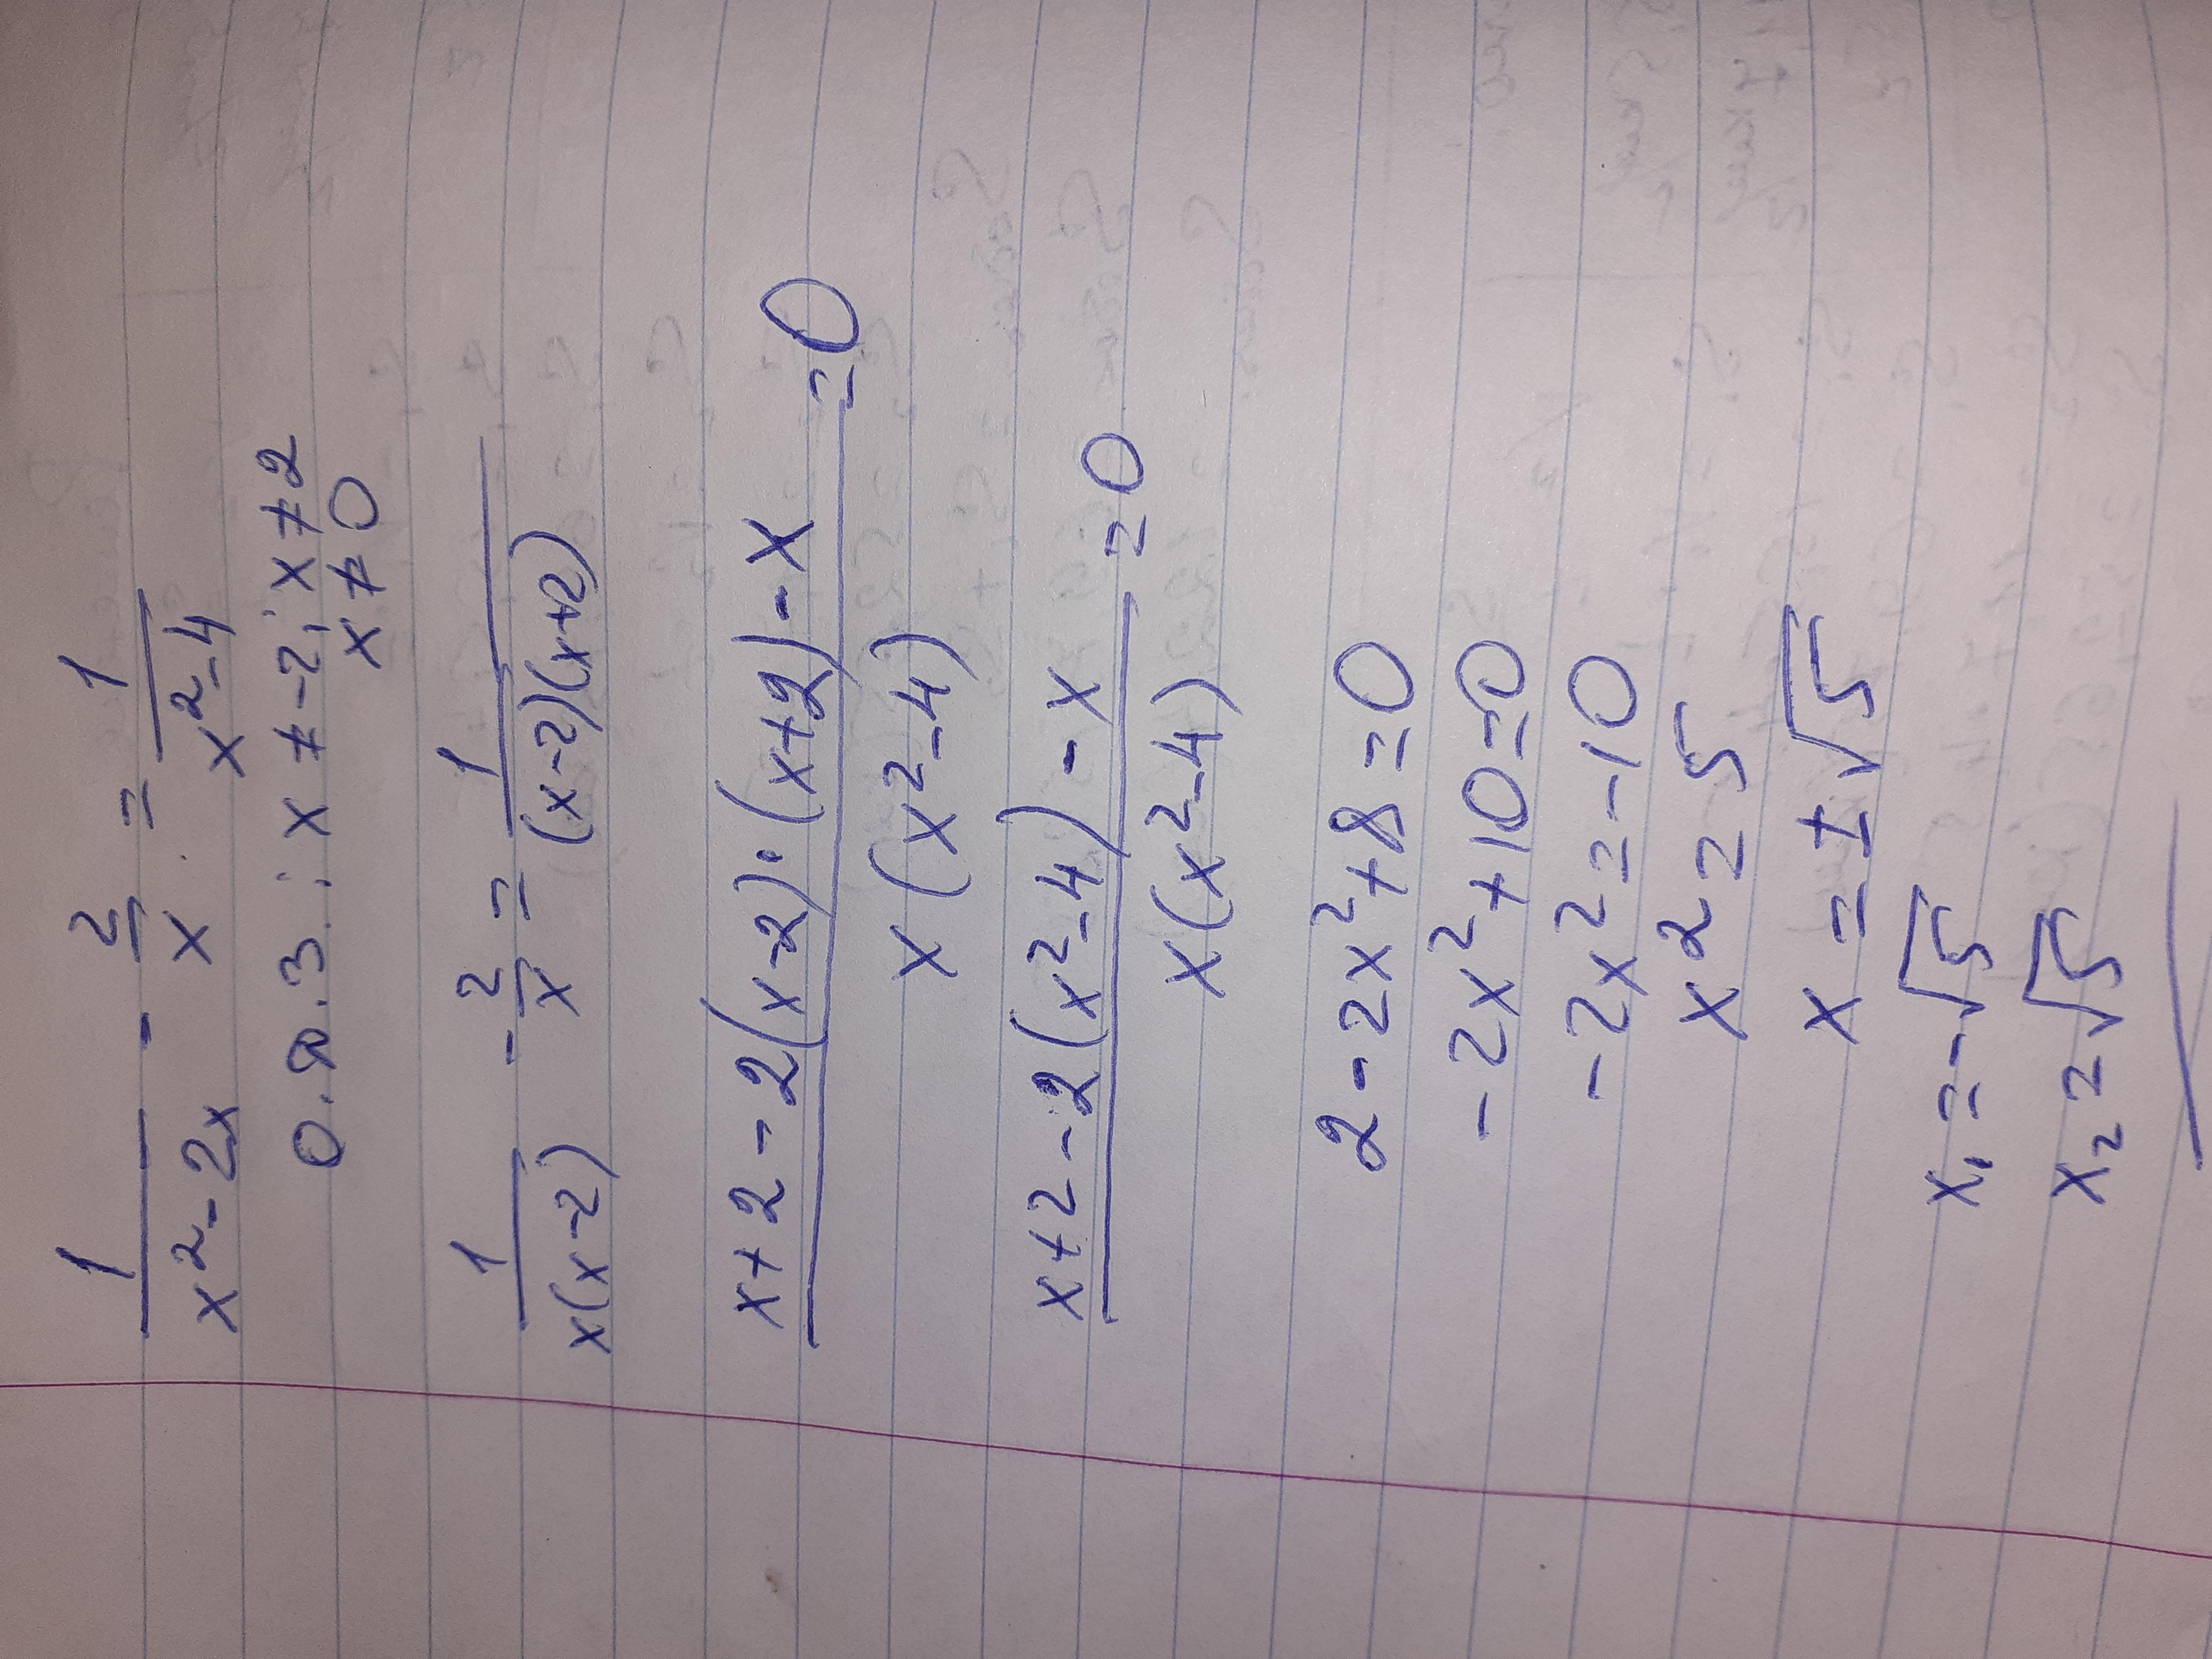 1/(x²-2x) - 2/x = 1/(x²-4)
О.Д.З.: x≠-2; x≠2
x≠0
1/(x(x-2)) - 2/x = 1/((x-2)(x+2))
(x+2-2(x-2)·(x+2)-x)/(x(x²-4)) = 0
(x+2-2(x²-4)-x)/(x(x²-4)) = 0
2-2x²+8=0
-2x²+10=0
-2x²=-10
x²=5
x=±√5
x₁=-√5
x₂=√5